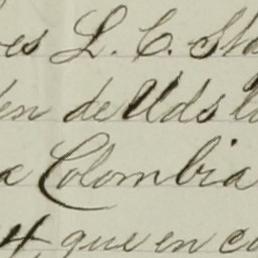 es L. C. Sta
en de Uds la
a Colombia
4, que en co